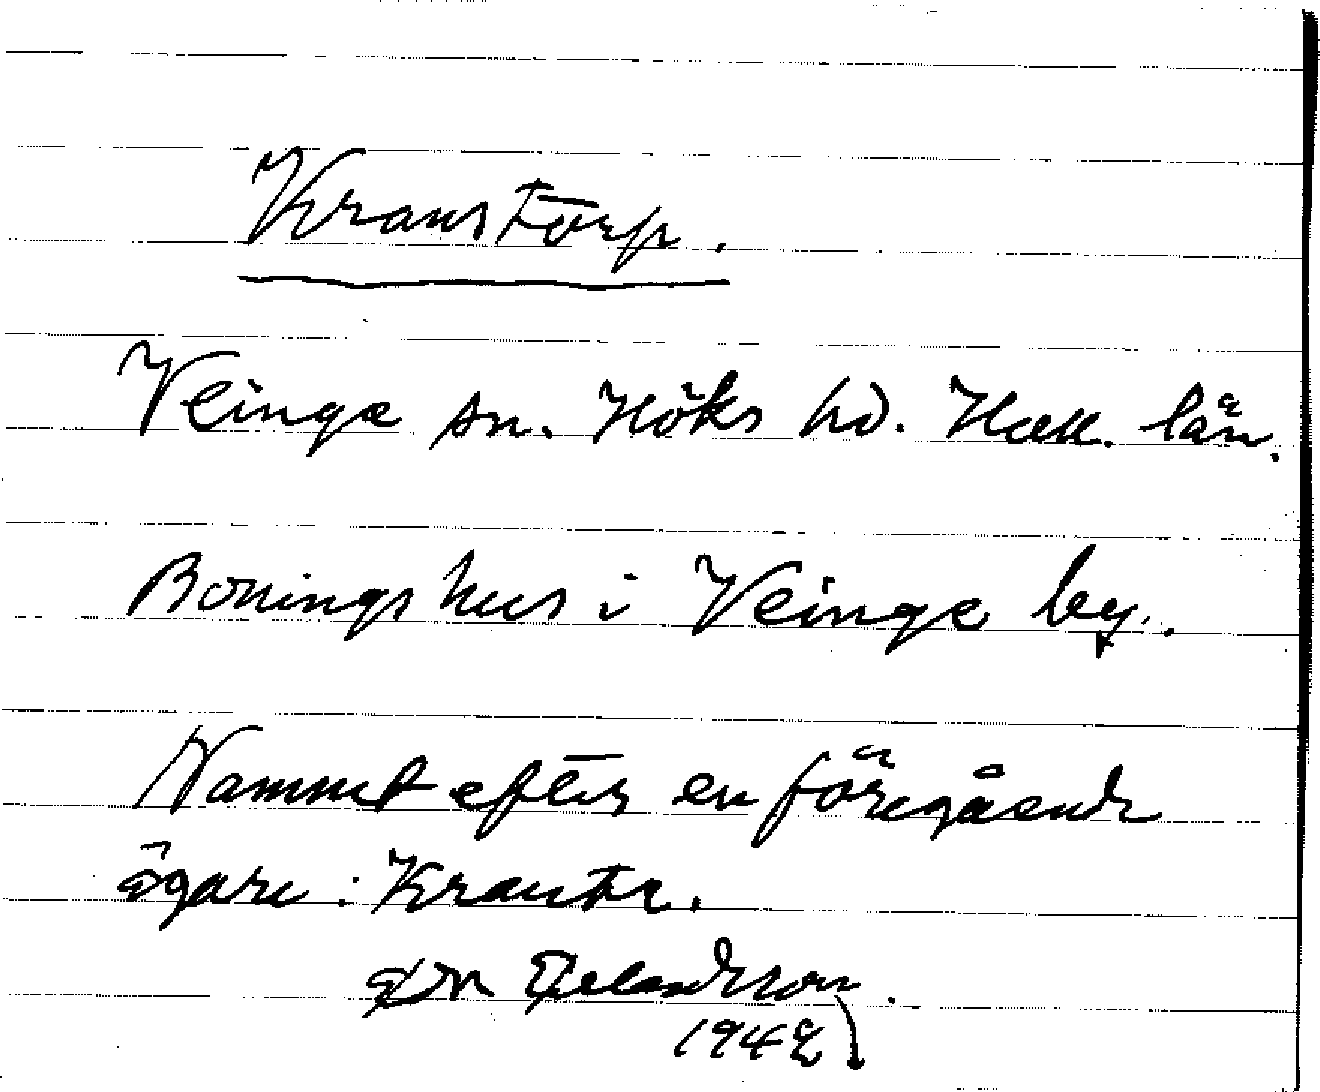 Kranstorp.
Veinge sn. Höks hd. Hall. län.
Boningshus i Veinge by.
Namnet efter en föregående
ägare: Krantz.
1942